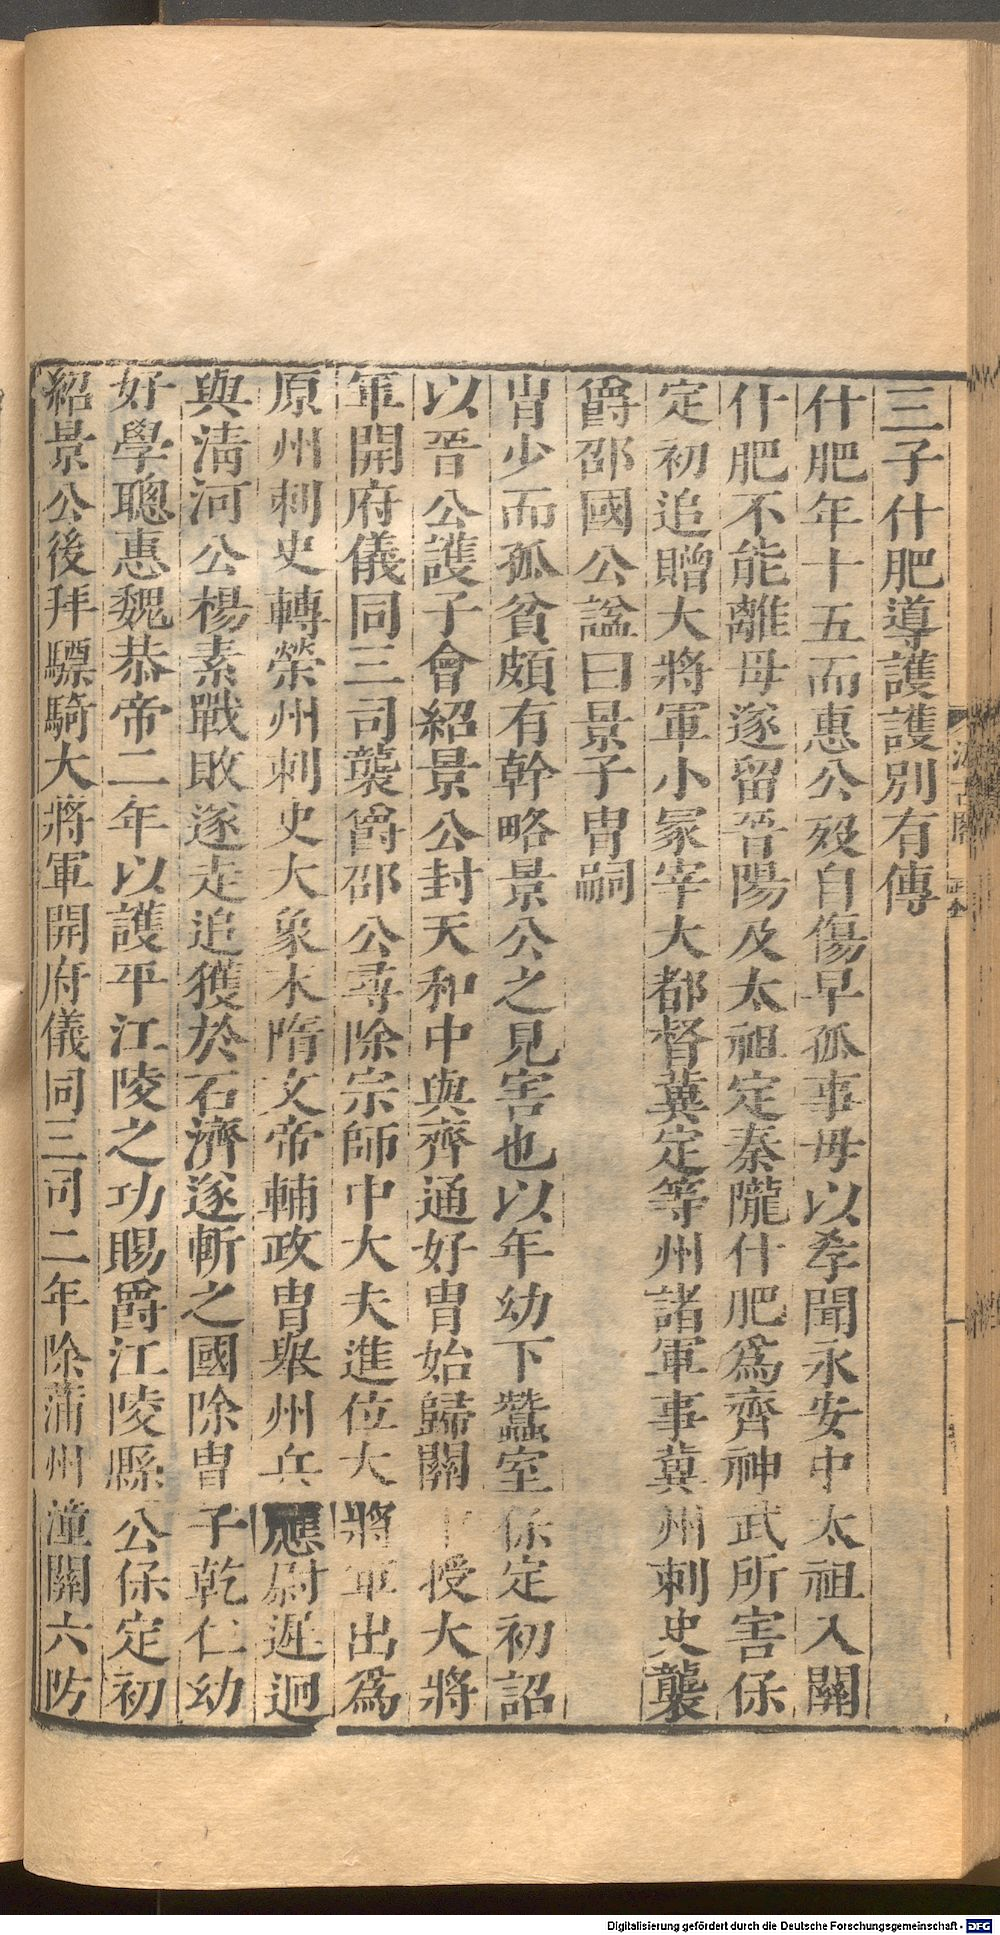 三子什肥導護護別有傳
什肥年十五而惠公歿自傷早孤事母以孝聞永安中太祖入關
什肥不能離母遂留晉陽及太祖定秦隴什肥爲齊神武所害保
定初追贈大將軍小冢宰大都督冀定等州諸軍事冀州刺史襲
爵邵國公諡曰景子胄嗣
胄少而孤貧頗有幹略景公之見害也以年幼下蠶室保定初詔
以晉公護子會紹景公封天和中與齊通好胄始歸關授大將
軍開府儀同三司襲爵邵公尋除宗師中大夫進位大將軍出爲
原州刺史轉榮州刺史大象末隋文帝輔政胄舉州兵應尉遲迥
與清河公楊素戰敗遂走追獲於石濟遂斬之國除胄子乾仁幼
好學聰惠魏恭帝二年以護平江陵之功賜爵江陵縣公保定初
紹景公後拜驃騎大將軍開府儀同三司二年除蒲州潼關六防
Digitalisierung gefördert durch die Deutsche Forschungsgemeinschaft - DFG